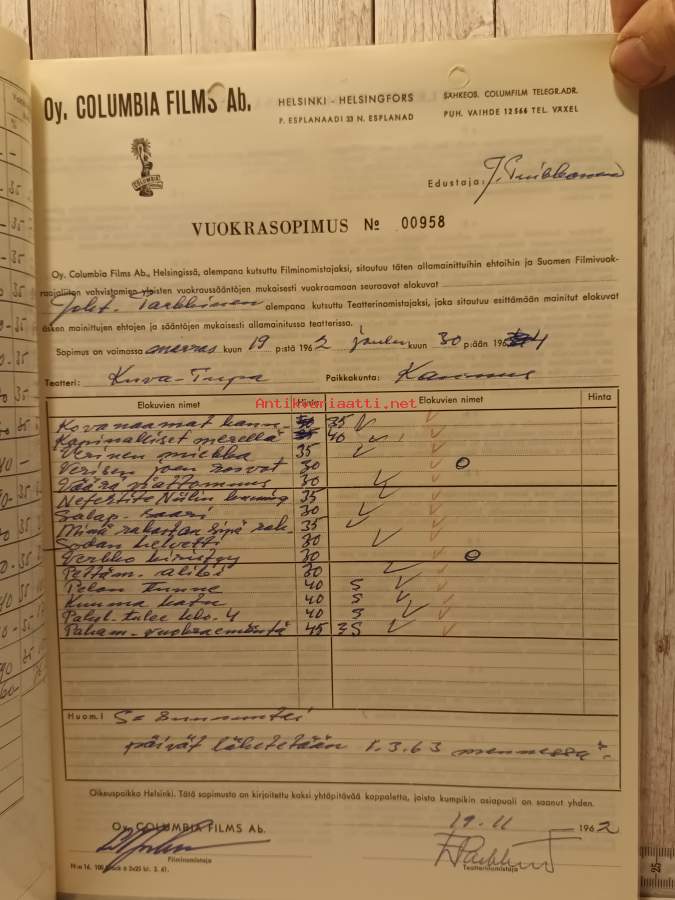 Oy. COLUMBIA FILMS Ab.
HELSINKI - HELSINGFORS
P. ESPLANAADI 33 N. ESPLANAD
SÄHKEOS. COLUMFILM TELEGR.ADR.
PUH. VAIHDE 12566 TEL. VÄXEL
COLUMBIA
Edustaja:
VUOKRASOPIMUS № 00958
Oy. Columbia Films Ab., Helsingissä, alempana kutsuttu Filminomistajaksi, sitoutuu täten allamainittuihin ehtoihin ja Suomen Filmivuok-
raajaliiton vahvistamien yleisten vuokraussääntöjen mukaisesti vuokraamaan seuraavat elokuvat
alempana kutsuttu Teatterinomistajaksi, joka sitoutuu esittämään mainitut elokuvat
äsken mainittujen ehtojen ja sääntöjen mukaisesti allamainitussa teatterissa.
Sopimus on voimassa marras kuun 19 p:stä 1962 joulu kuun 30 p:ään 196
Teatteri: Kuva-Tupa Paikkakunta: Karinus
Elokuvien nimet Hinta Elokuvien nimet Hinta
Antikvariaatti.net
Kovanaamat 35
Kapinalliset merellä 40
Verinen miekka 35
Verisen joen rosvot 30
Väärä viattomuus 30
Nefertite Niilin kuning 35
Salap. saari 30
Minä rakastan sinä rak. 35
Sodan helvetti 30
Verkko kiristyy 30
Pettäm. alibi 30
Pelon tunne 40 S
Kuuma katu 40 S
Palul. tulee klo. 4 40 S
Paham. vuokraemäntä 45 35
Huom.! S= sunnuntai
päivät lähetetään 1.3.63 mennessä.
Oikeuspaikka Helsinki. Tätä sopimusta on kirjoitettu kaksi yhtäpitävää kappaletta, joista kumpikin asiapuoli on saanut yhden.
19.11 1962
Oy. COLUMBIA FILMS Ab.
Filminomistaja
Teatterinomistaja